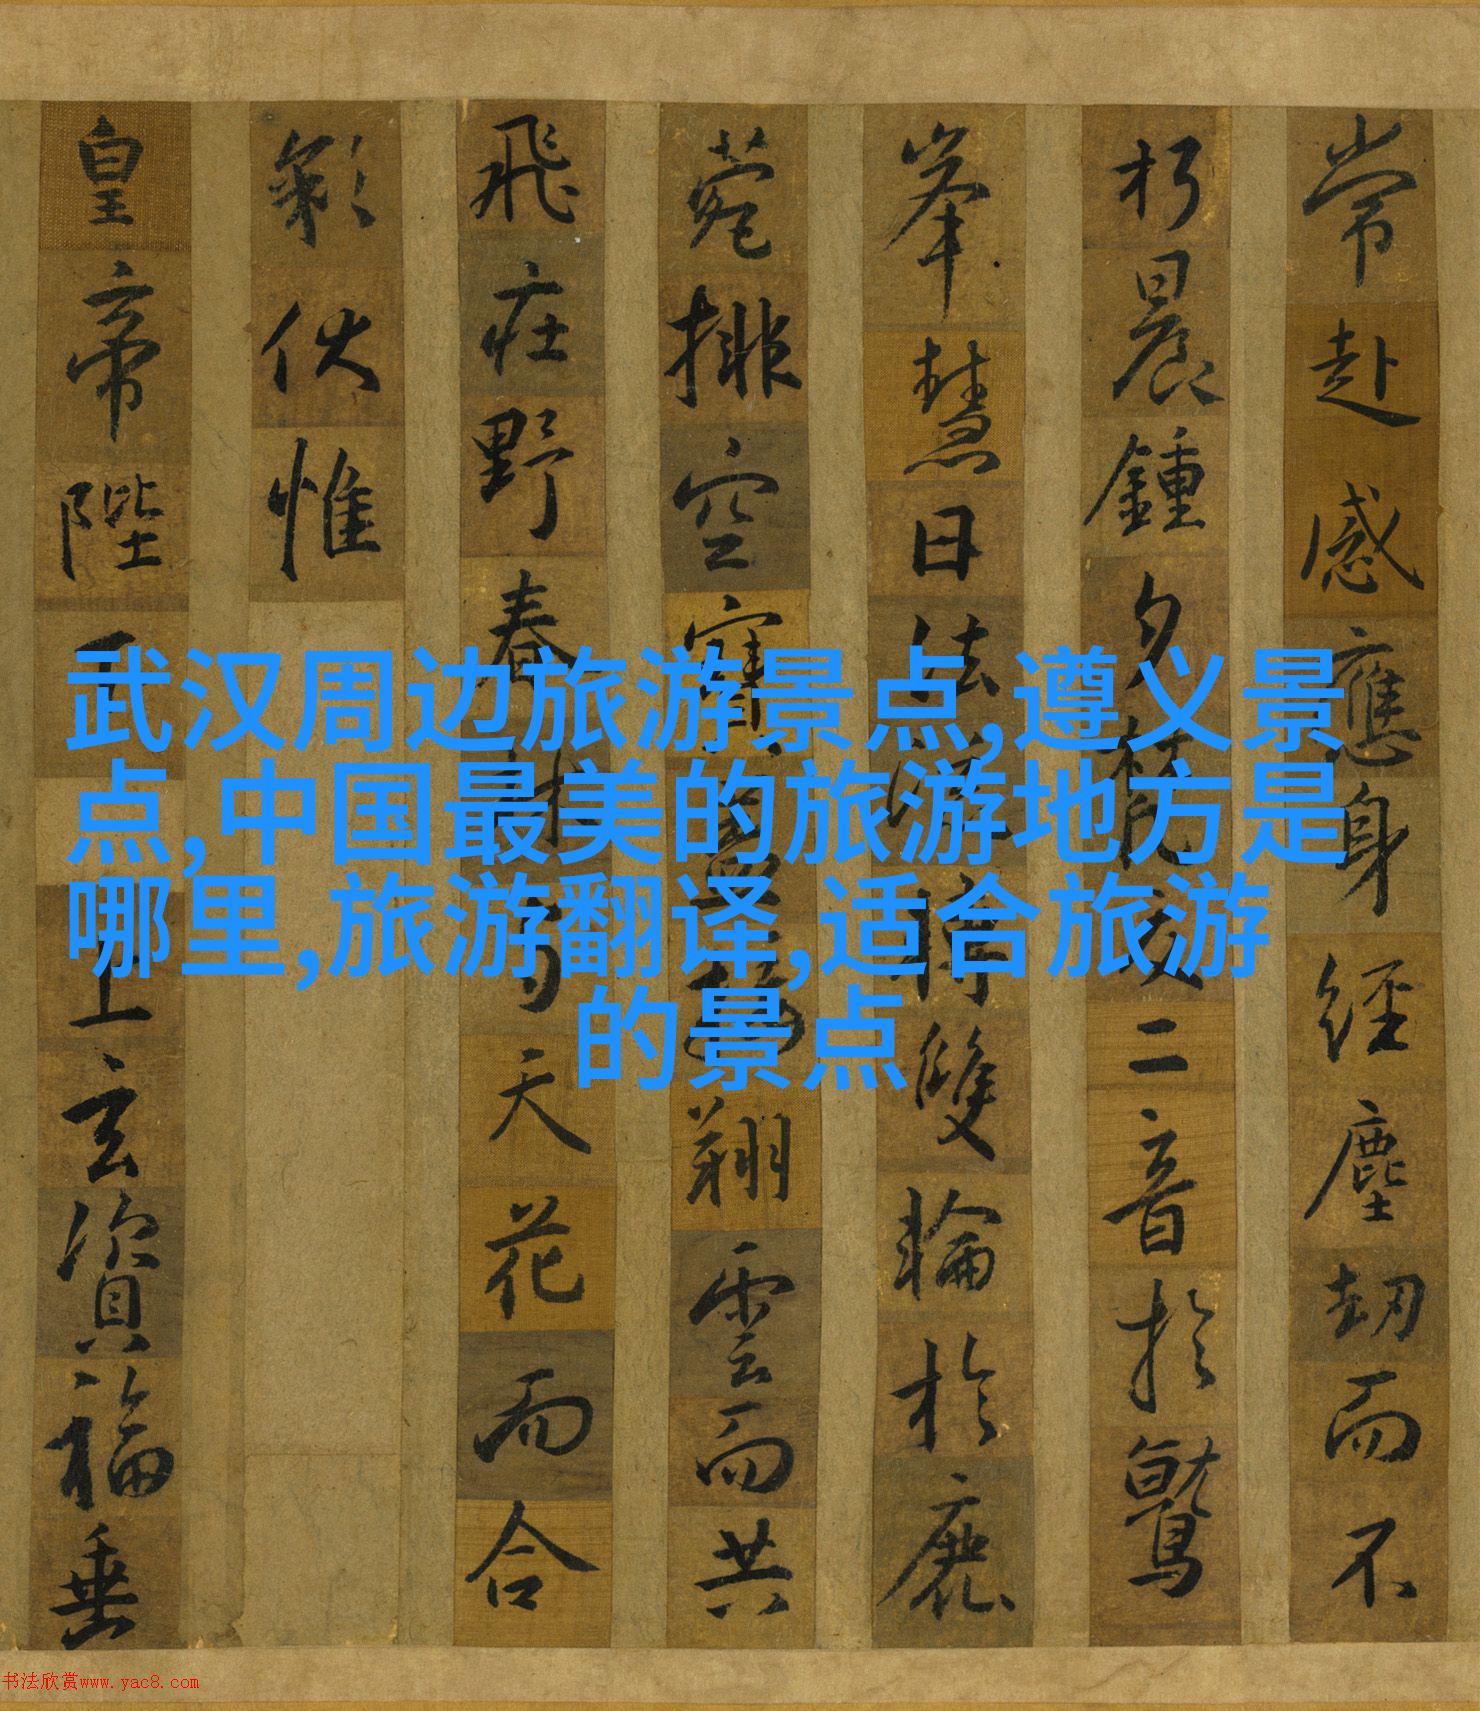 常赴感應身經塵劫而不
朽晨鍾夕梵交二音於鷲
峯慧日法流轉雙輪於鹿
菀排空寶蓋接翔雲而共
飛莊野春林与天花而合
彩伏惟
皇帝陛下上玄資福垂
武汉周边旅游景点,遵义景
点,中国最美的旅游地方是
哪里,旅游翻译,适合旅游
的景点
书法欣赏www.yac8.com